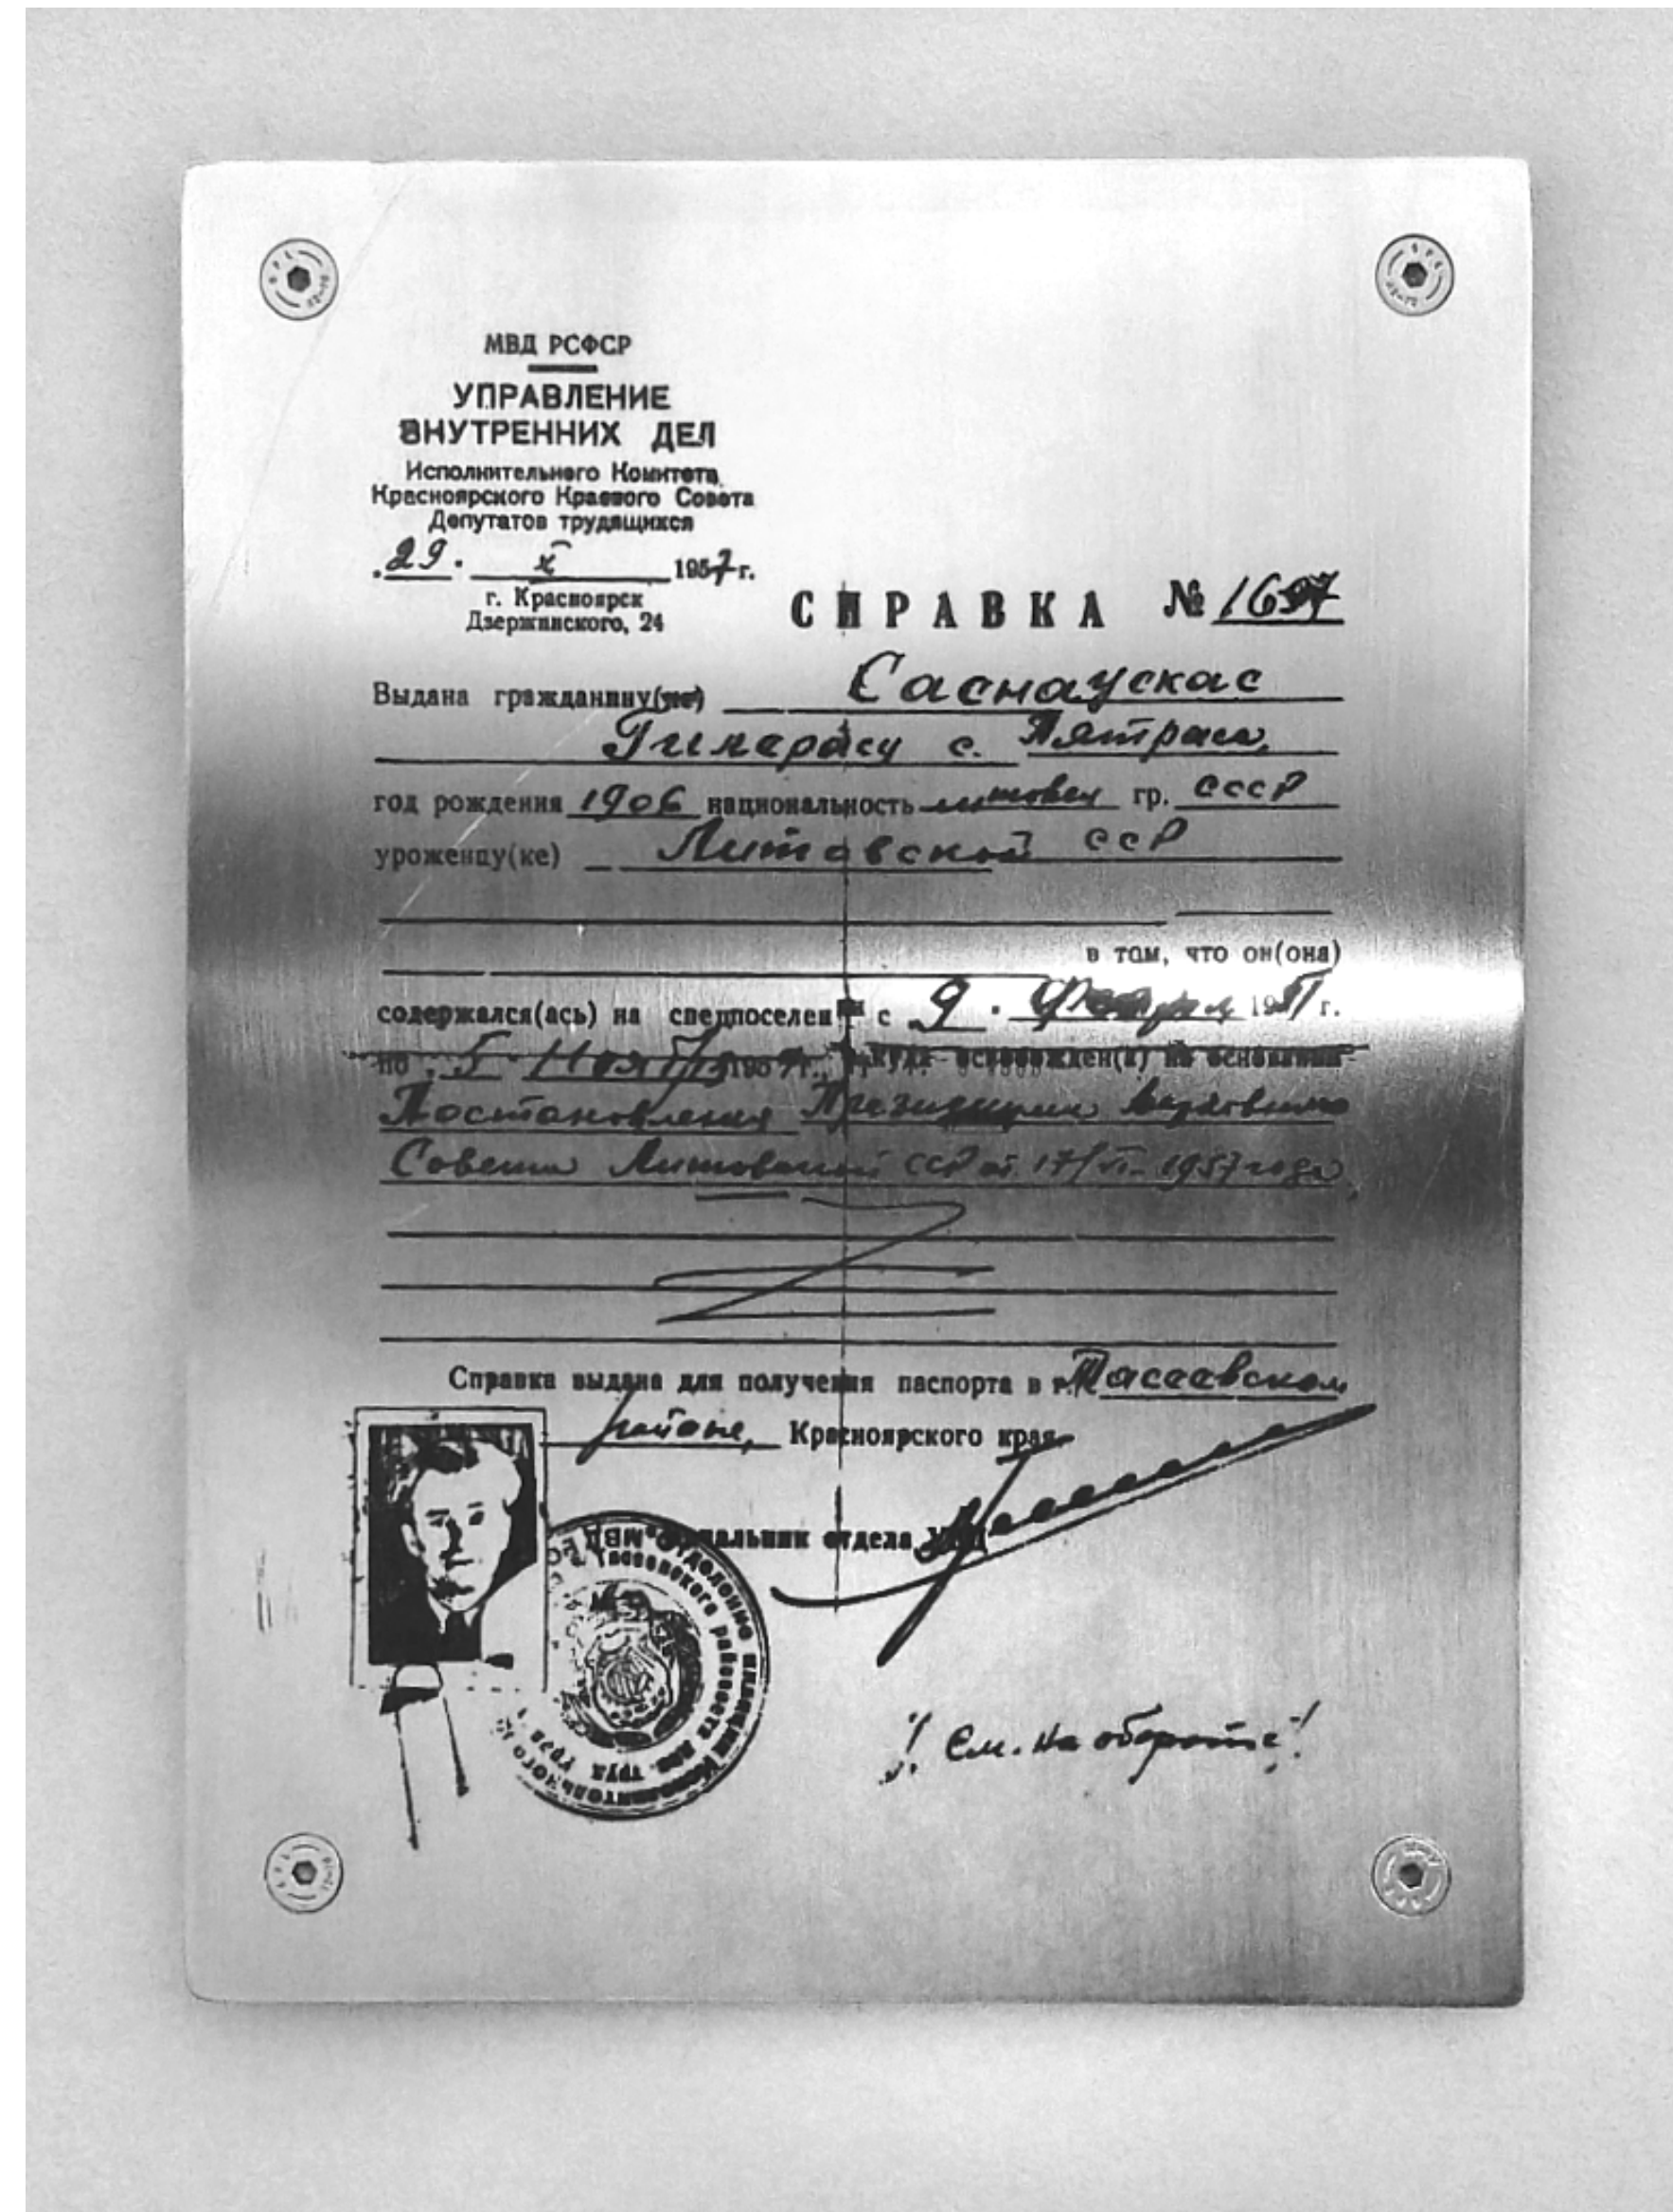 МВД РСФСР
УПРАВЛЕНИЕ
ВНУТРЕННИХ ДЕЛ
Исполнительного Комитета
Красноярского Краевого Совета
Депутатов трудящихся
29. X 1957 г.
г. Красноярск
Дзержинского, 24
СПРАВКА № 1697
Выдана гражданину(ке) Саснаускас
с. Пятраса
год рождения 1906 национальность литовец гр. СССР
уроженцу(ке) Литовской ССР
в том, что он(она)
содержался(ась) на спецпоселении с 9. февраля 1951 г.
по 5 Ноября 195 г., откуда освобожден(а) на основании
Постановления Президиума Верховного
Совета Литовской ССР от 17/VI-1957 года,
Справка выдана для получения паспорта в г. Тасеевском
районе, Красноярского края
Начальник отдела УВД
! См. на обороте!